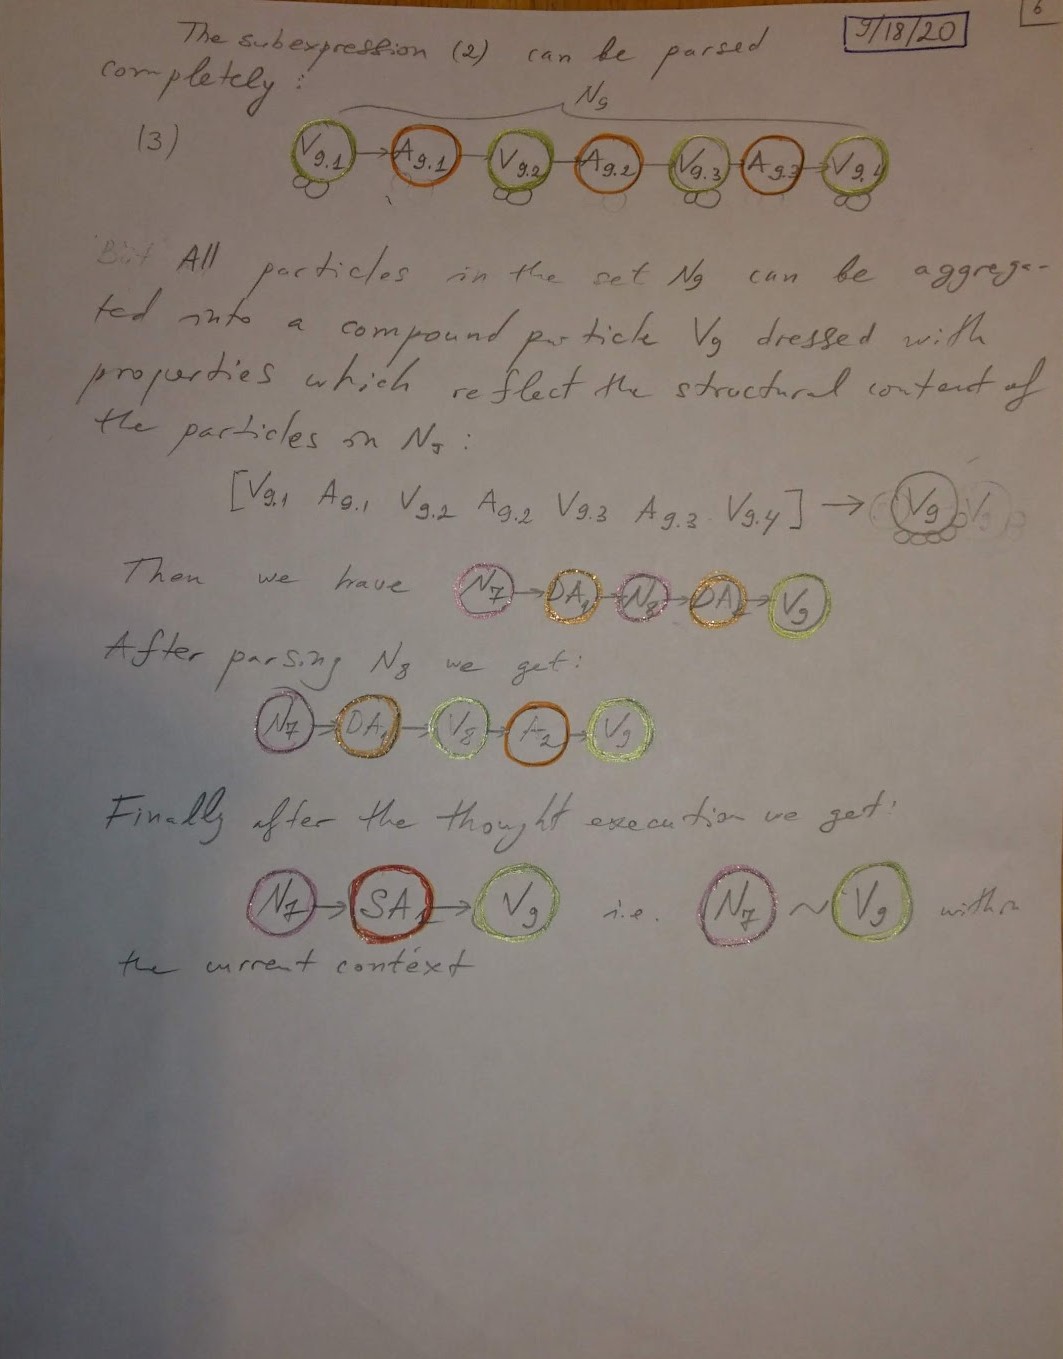 6
The subexpression (2) can be parsed 9/18/20
completely:
N9
(3) V9.1 → A9.1 → V9.2 → A9.2 → V9.3 → A9.3 → V9.4
But All particles in the set N9 can be aggrega-
ted into a compound particle V9 dressed with
properties which reflect the structural content of
the particles in N9:
[V9.1 A9.1 V9.2 A9.2 V9.3 A9.3 V9.4] → V9
Then we have N7 → DA1 → N8 → DA2 → V9
After parsing N8 we get:
N7 → DA1 → V8 → A2 → V9
Finally after the thought execution we get:
N7 → SA1 → V9 i.e. N7 ~ V9 within
the current context